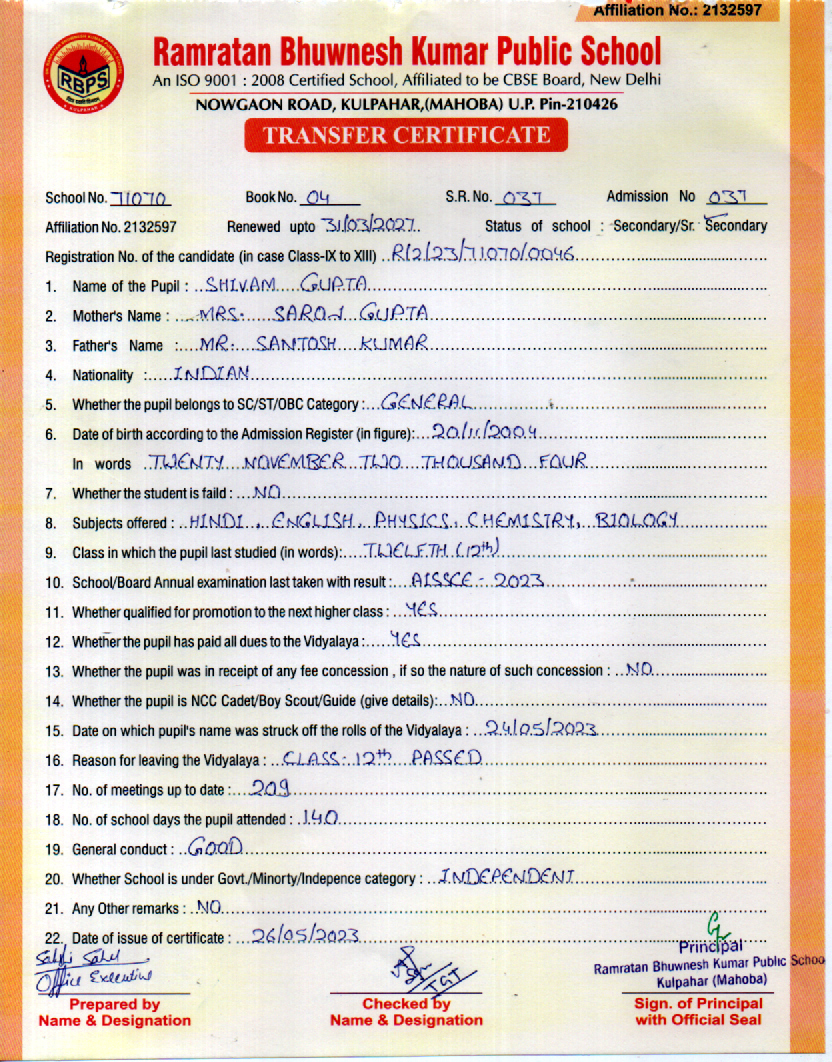 Affiliation No.: 2132597
RBPS
KULPAHAR
Ramratan Bhuwnesh Kumar Public School
An ISO 9001 : 2008 Certified School, Affiliated to be CBSE Board, New Delhi
NOWGAON ROAD, KULPAHAR,(MAHOBA) U.P. Pin-210426
TRANSFER CERTIFICATE
School No. 71070 Book No. 04 S.R. No. 037 Admission No 037
Affiliation No. 2132597 Renewed upto 31/03/2027. Status of school : Secondary/Sr. Secondary
Registration No. of the candidate (in case Class-IX to XIII) R/2/23/71070/0046
1. Name of the Pupil : SHIVAM GUPTA
2. Mother's Name : MRS. SAROJ GUPTA
3. Father's Name : MR. SANTOSH KUMAR
4. Nationality : INDIAN
5. Whether the pupil belongs to SC/ST/OBC Category : GENERAL
6. Date of birth according to the Admission Register (in figure): 20/11/2004
In words TWENTY NOVEMBER TWO THOUSAND FOUR
7. Whether the student is faild : NO
8. Subjects offered : HINDI, ENGLISH, PHYSICS, CHEMISTRY, BIOLOGY
9. Class in which the pupil last studied (in words): TWELFTH (12th)
10. School/Board Annual examination last taken with result : AISSCE - 2023
11. Whether qualified for promotion to the next higher class : YES
12. Whether the pupil has paid all dues to the Vidyalaya : YES
13. Whether the pupil was in receipt of any fee concession , if so the nature of such concession : NO
14. Whether the pupil is NCC Cadet/Boy Scout/Guide (give details): NO
15. Date on which pupil's name was struck off the rolls of the Vidyalaya : 24/05/2023
16. Reason for leaving the Vidyalaya : CLASS- 12th PASSED
17. No. of meetings up to date : 209
18. No. of school days the pupil attended : 140
19. General conduct : GOOD
20. Whether School is under Govt./Minorty/Indepence category : INDEPENDENT
21. Any Other remarks : NO
22. Date of issue of certificate : 26/05/2023
Office Executive
TGT
Principal
Ramratan Bhuwnesh Kumar Public Schoo
Kulpahar (Mahoba)
Prepared by
Name & Designation
Checked by
Name & Designation
Sign. of Principal
with Official Seal